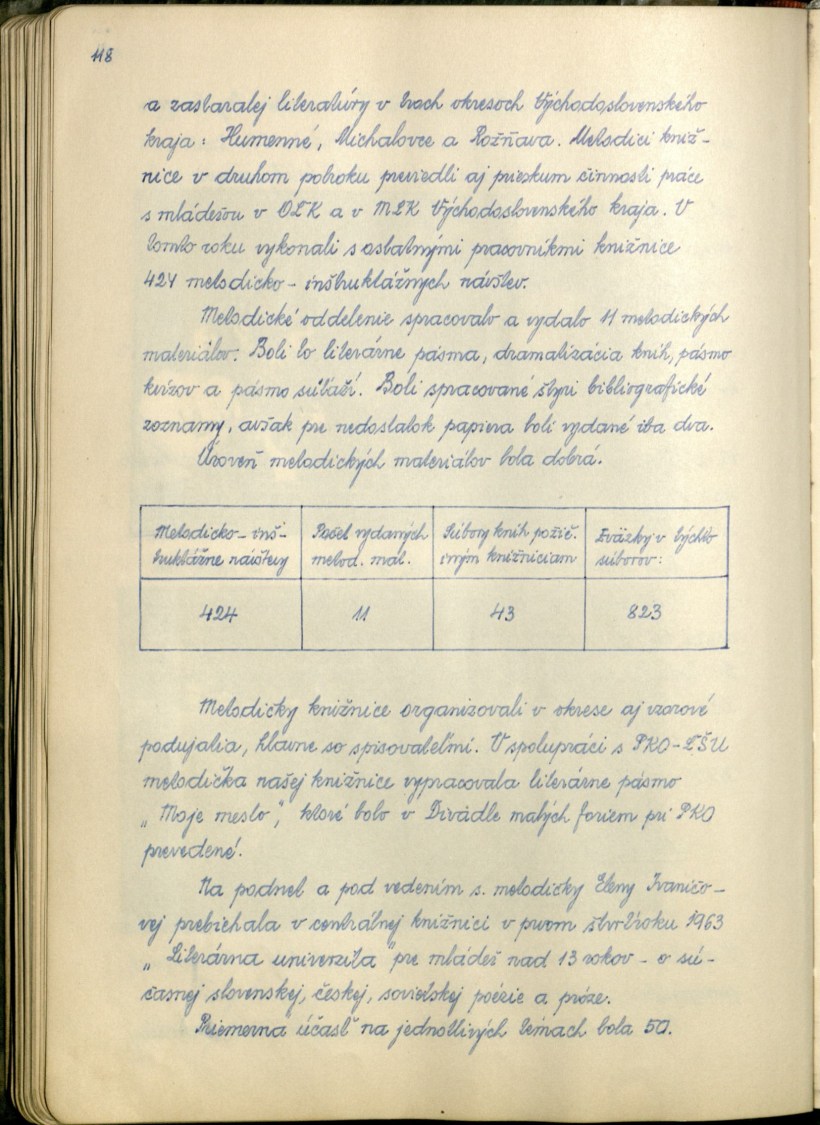 118
a zastaralej literatúry v troch okresoch Východoslovenského
kraja: Humenné, Michalovce a Rožňava. Metodici kniž-
nice v druhom polroku previedli aj prieskum činnosti práce
s mládežou v OĽK a v MĽK Východoslovenského kraja. V
tomto roku vykonali s ostatnými pracovníkmi knižnice
424 metodicko-inštruktážnych návštev.
Metodické oddelenie spracovalo a vydalo 11 metodických
materiálov. Boli to literárne pásma, dramatizácia kníh, pásmo
kvízov a pásmo súťaží. Boli spracované štyri bibliografické
zoznamy, avšak pre nedostatok papiera boli vydané iba dva.
Úroveň metodických materiálov bola dobrá.
Metodicko-inš-
truktážne návštevy
Počet vydaných
metod. mat.
Súbory kníh požič.
iným knižniciam
Zväzky v týchto
súborov:
424
11
43
823
Metodičky knižnice organizovali v okrese aj vzorové
podujatia, hlavne so spisovateľmi. V spolupráci s PKO-ĽŠU
metodička našej knižnice vypracovala literárne pásmo
„Moje mesto", ktoré bolo v Divadle malých foriem pri PKO
prevedené.
Na podnet a pod vedením s. metodičky Eleny Ivaničo-
vej prebiehala v centrálnej knižnici v prvom štvrťroku 1963
„Literárna univerzita" pre mládež nad 13 rokov - o sú-
časnej slovenskej, českej, sovietskej poézie a próze.
Priemerná účasť na jednotlivých témach bola 50.